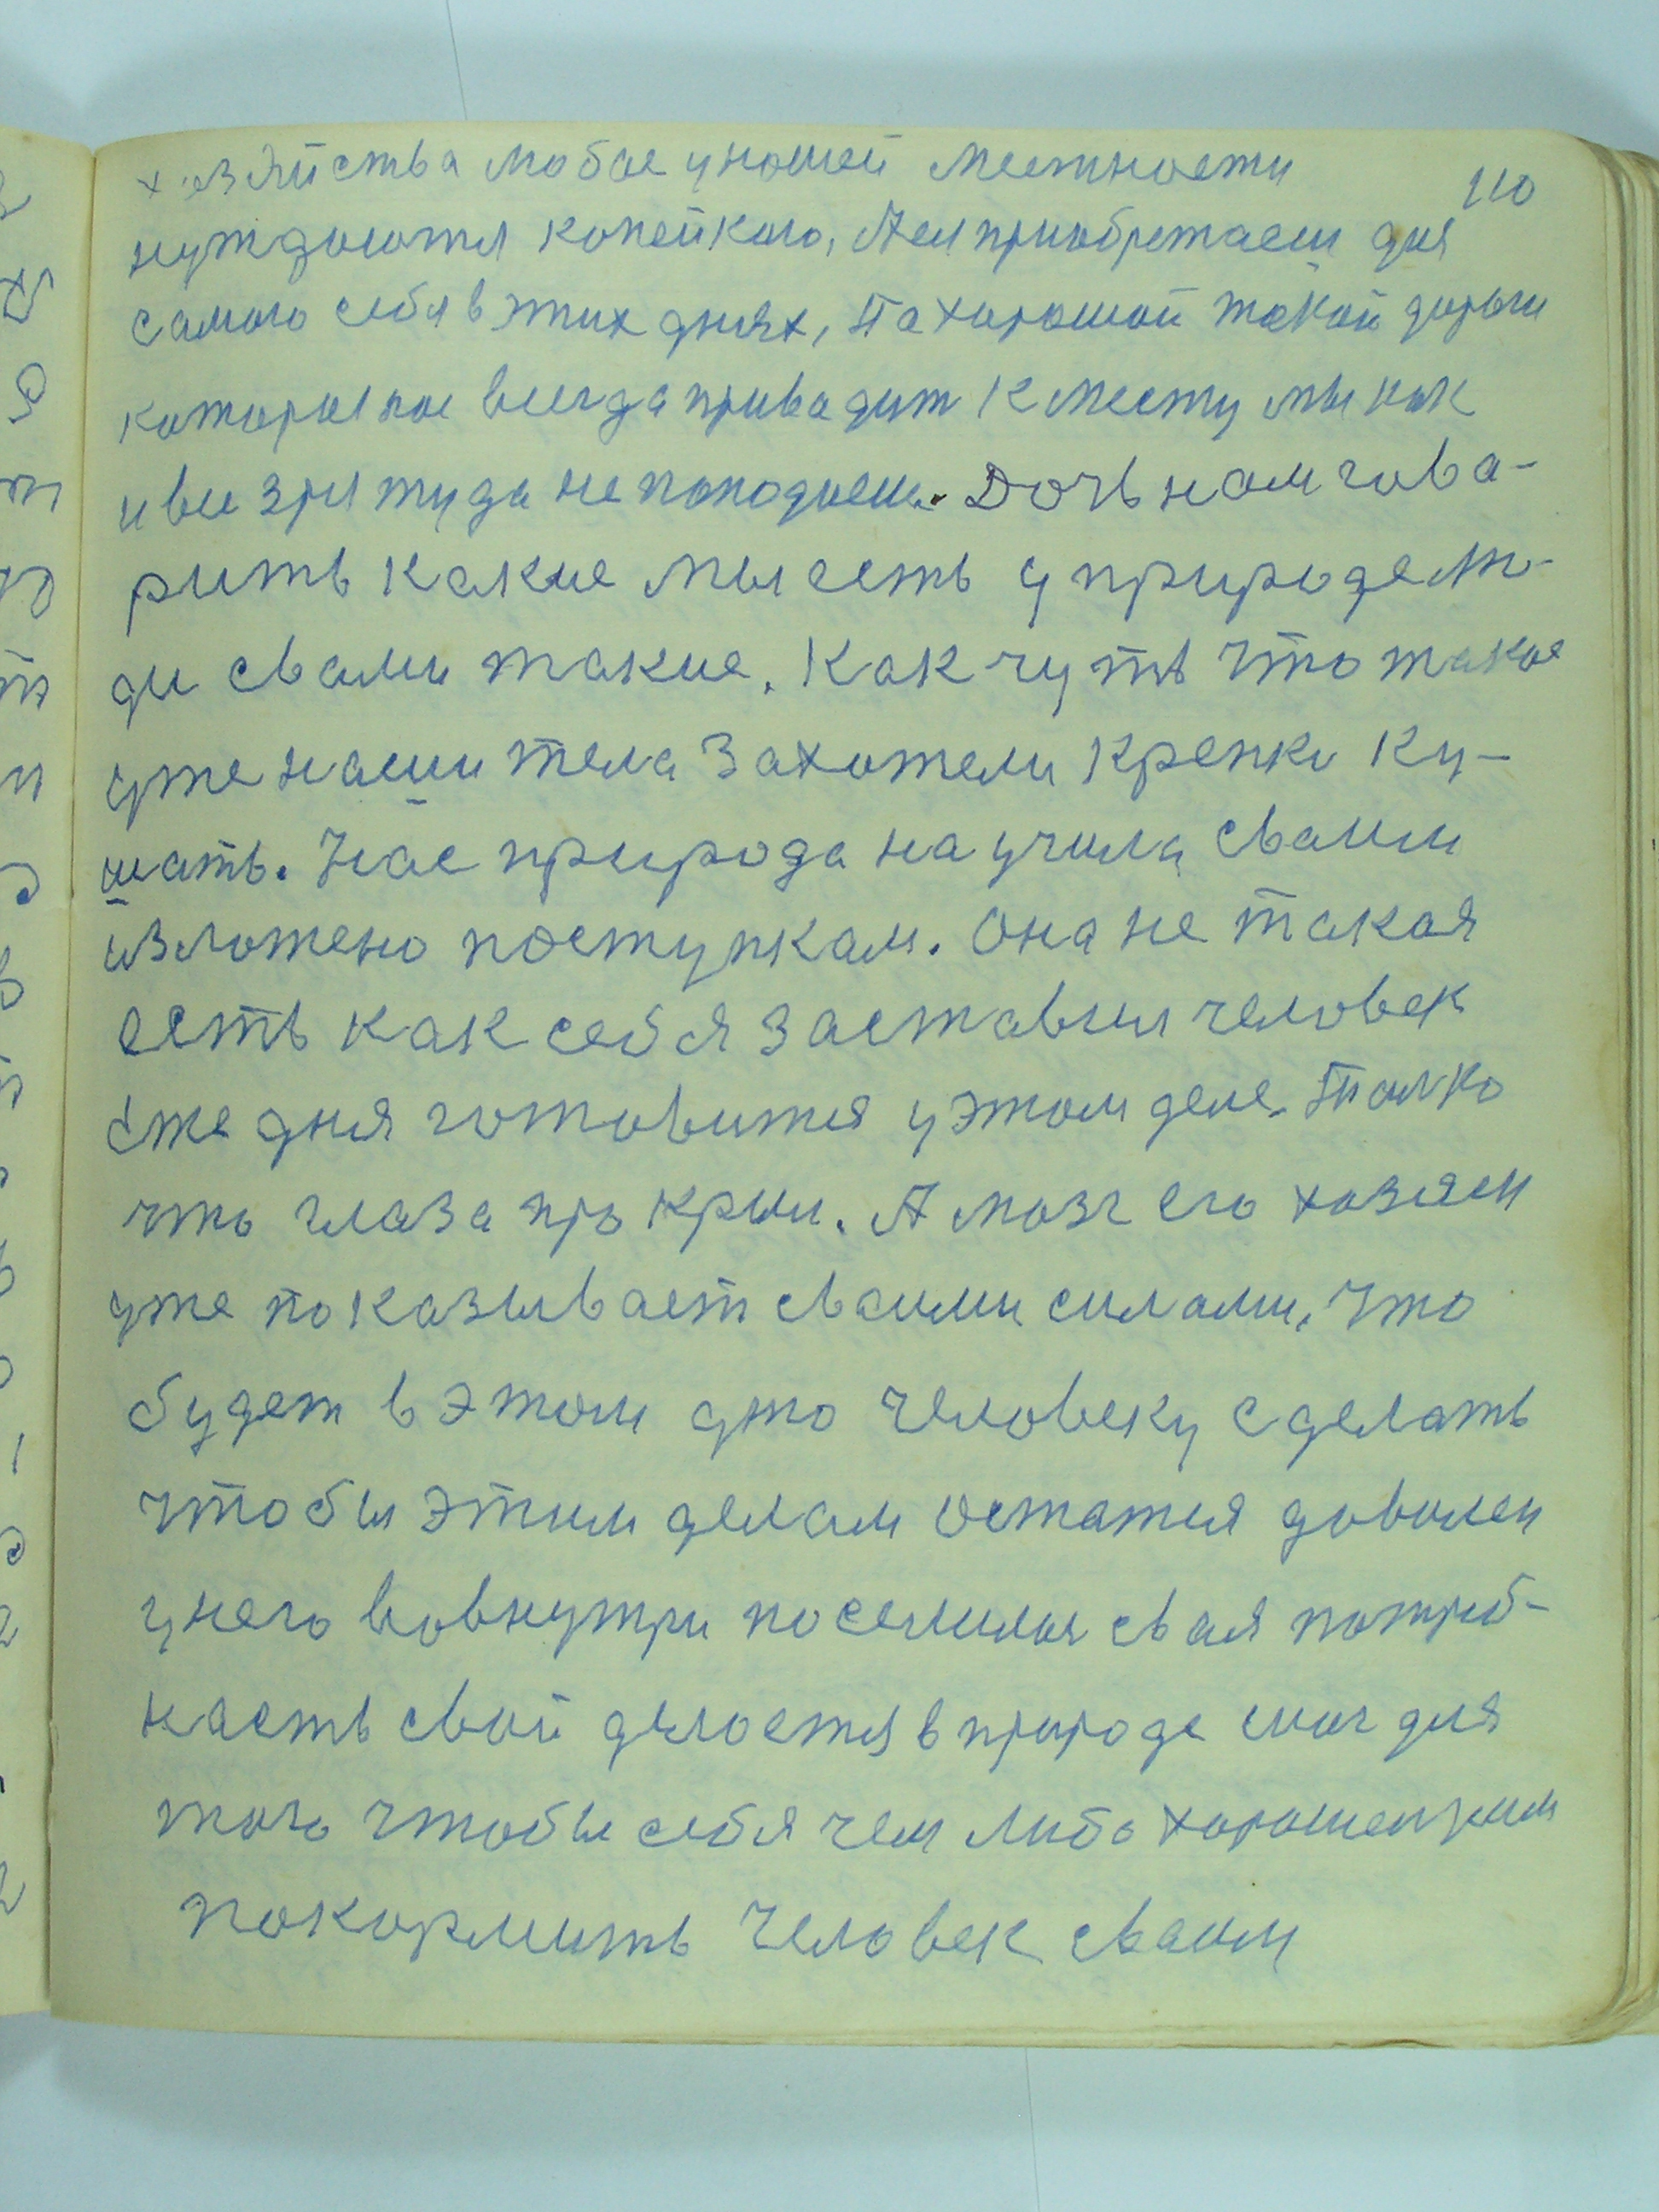 хозяйства любое у нашей местности
110
нуждаются копейкаю, Мы приобретаем для
самого себя в этих днях, Па хорошой такой дороги
которая нас всегда приводит к месту мы как
и все зря туда не поподаем. Дочь нам гова-
рить какие мы есть у природе лю-
ди с вами такие. Как чуть что такое
уже наши тела захотели крепко ку-
шать. Нас природа научила сваим
изложено поступкам. Она не такая
есть как себя заставил человек
еже дня готовится у этом деле. Толко
что глаза про крыл. А мозг его хозяен
уже показывает сваими силами, что
будет в этом дто человеку сделать
чтобы этим делам остатся доволен
у него вовнутри поселилас свая потреб-
насть свой делается в природе смог для
того чтобы себя чем либо хорошенким
покормить человек сваим